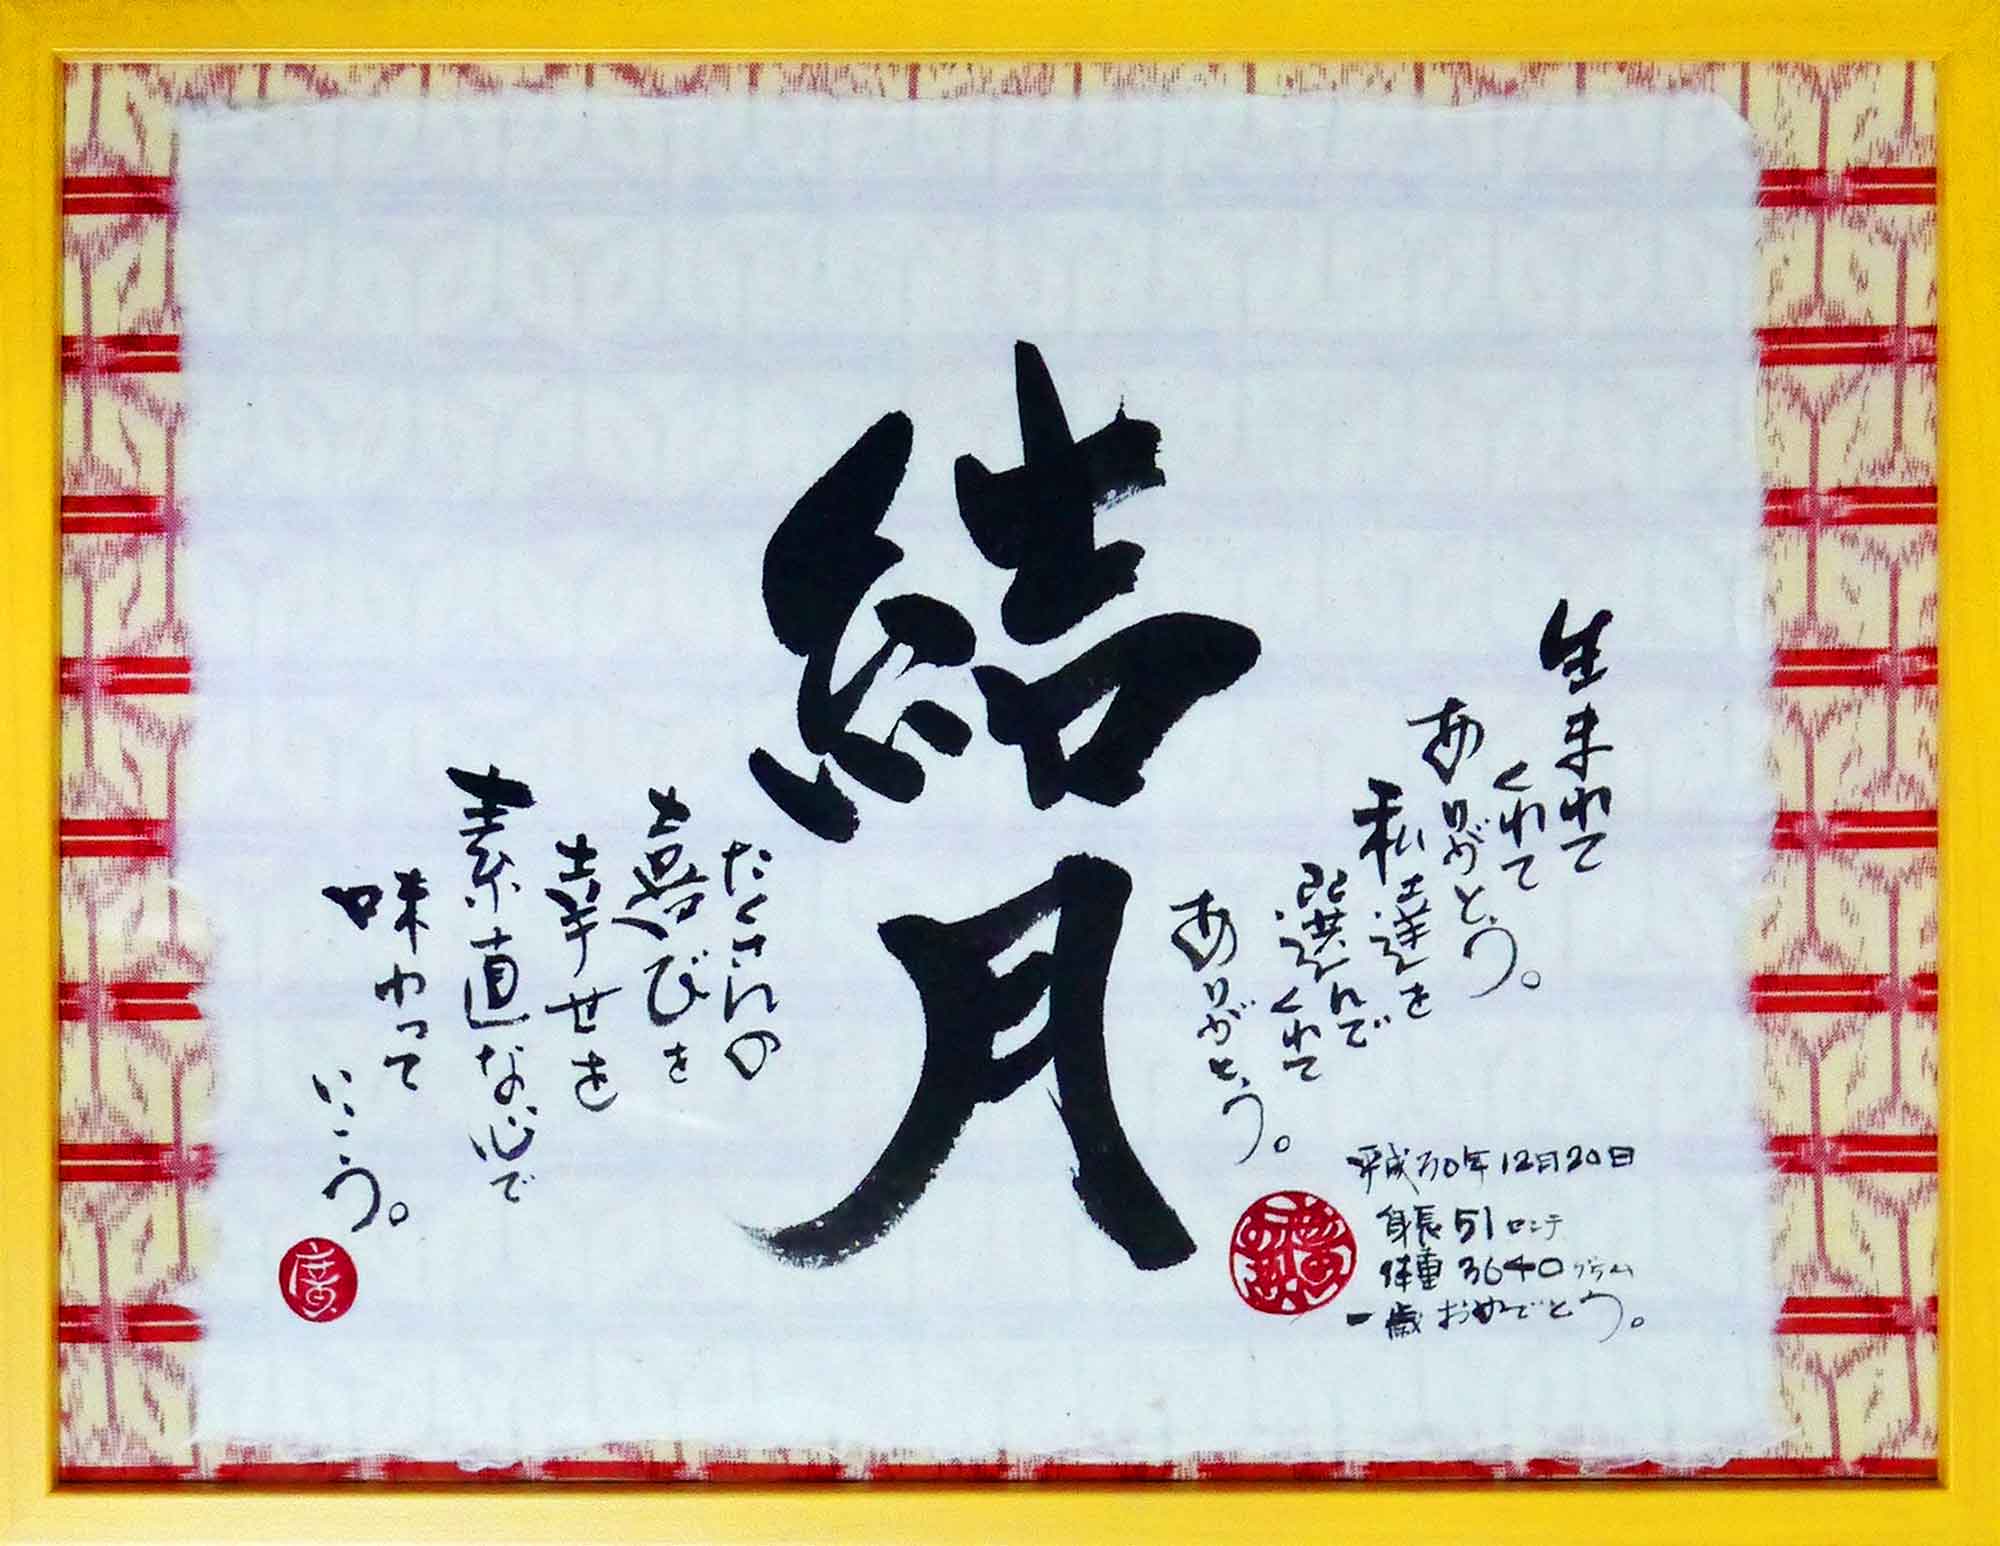 生まれて
くれて
ありがとう。
私達を
選んで
くれて
ありがとう。
結月
たくさんの
喜びを
幸せを
素直な心で
味わって
いこう。
平成30年12月20日
身長51センチ
体重3640グラム
一歳おめでとう。
廣